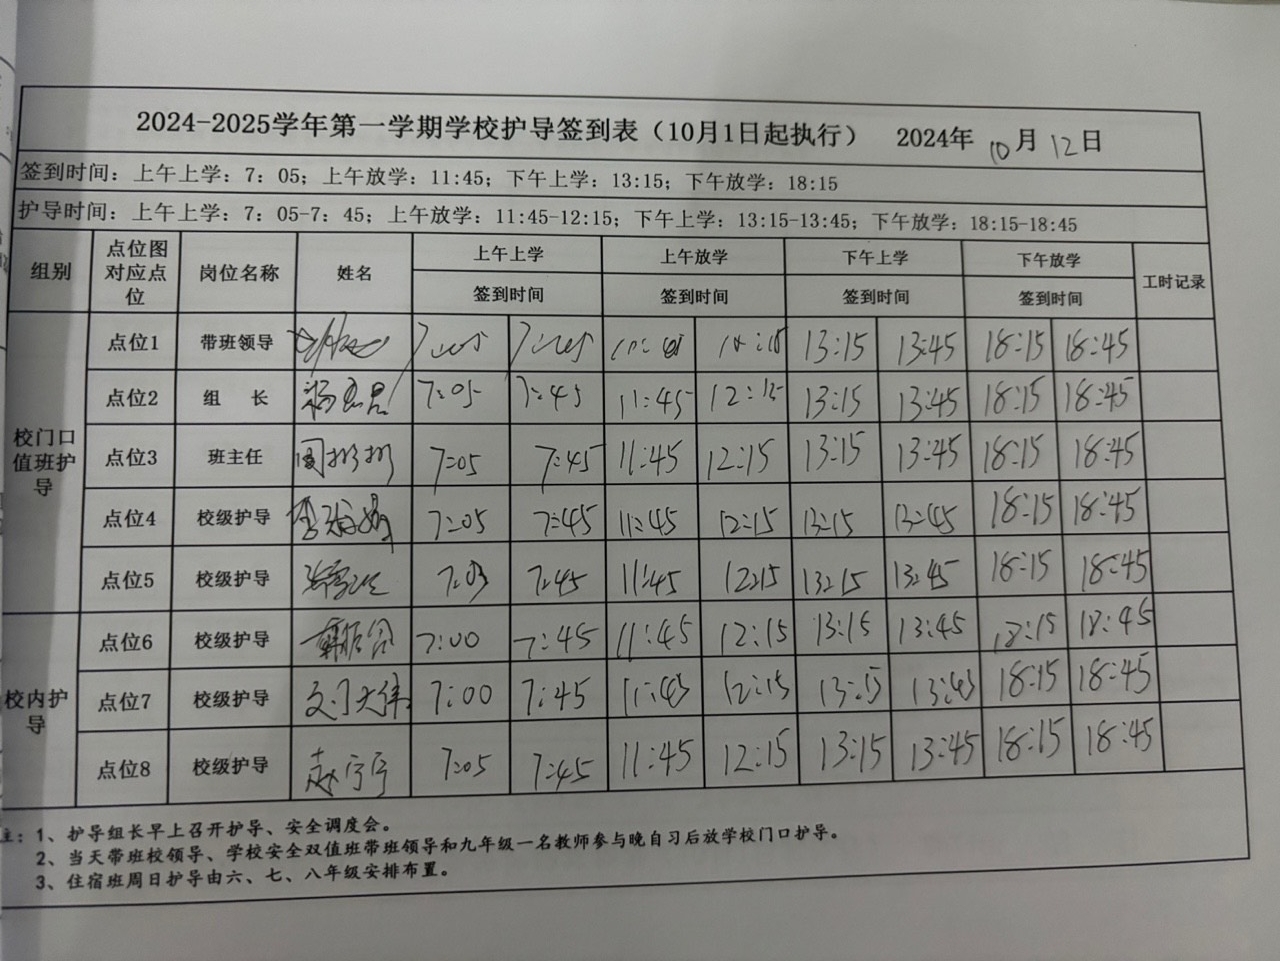 2024-2025学年第一学期学校护导签到表（10月1日起执行） 2024年 10月 12日
签到时间：上午上学：7：05；上午放学：11:45；下午上学：13:15；下午放学：18:15
护导时间：上午上学：7：05-7：45；上午放学：11:45-12:15；下午上学：13:15-13:45；下午放学：18:15-18:45
组别 点位图对应点位 岗位名称 姓名 上午上学 上午放学 下午上学 下午放学 工时记录
签到时间 签到时间 签到时间 签到时间
校门口值班护导
点位1 带班领导 13:15 13:45 18:15 18:45
点位2 组 长 7:05 7:45 11:45 12:15 13:15 13:45 18:15 18:45
点位3 班主任 7:05 7:45 11:45 12:15 13:15 13:45 18:15 18:45
点位4 校级护导 7:05 7:45 11:45 12:15 13:15 13:45 18:15 18:45
点位5 校级护导 7:45 11:45 12:15 13:15 13:45 18:15 18:45
校内护导
点位6 校级护导 7:00 7:45 11:45 12:15 13:15 13:45 18:15 18:45
点位7 校级护导 7:00 7:45 11:45 12:15 13:15 13:45 18:15 18:45
点位8 校级护导 赵宁宁 7:05 7:45 11:45 12:15 13:15 13:45 18:15 18:45
注：1、护导组长早上召开护导、安全调度会。
2、当天带班校领导、学校安全双值班带班领导和九年级一名教师参与晚自习后放学校门口护导。
3、住宿班周日护导由六、七、八年级安排布置。